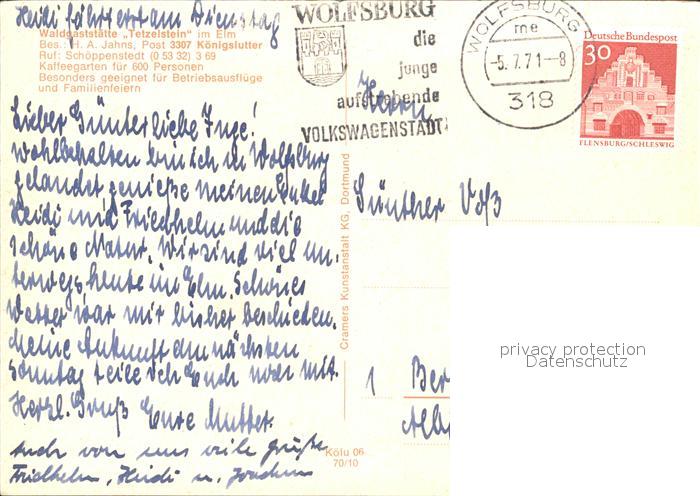 Heidi fährt erst am Dienstag
Waldgaststätte „Tetzelstein" im Elm
Bes.: H. A. Jahns, Post 3307 Königslutter
Ruf: Schöppenstedt (0 53 32) 3 69
Kaffeegarten für 600 Personen
Besonders geeignet für Betriebsausflüge
und Familienfeiern
Lieber Günter liebe Inge!
Wohlbehalten bin ich in Wolfsburg
gelandet genieße meinen Enkel
Heidi mit Friedhelm und die
schöne Natur. Wir sind viel un-
terwegs heute im Elm. Schönes
Wetter war mir bisher beschieden.
Meine Ankunft am nächsten
Sonntag teile ich Euch noch mit.
Herzl. Gruß Eure Mutter.
Auch von uns viele Grüße
Friedhelm, Heidi u. Joachim
WOLFSBURG
die
junge
aufstrebende
VOLKSWAGENSTADT
WOLFSBURG
me
-5.7.71-8
318
Deutsche Bundespost
30
FLENSBURG/SCHLESWIG
Herrn
Günther Voß
1 Ber
Alb
Cramers Kunstanstalt KG, Dortmund
Kölu 06
70/10
privacy protection
Datenschutz